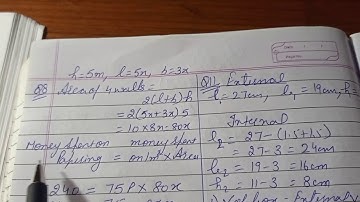 h=5m, l=5n, b=3x
Q8 Area of 4 walls =
2(l+b)h
= 2(5x+3x)5
= 10×8x=80x
Money spent on money spent
Papering = on 1m²×Area
240 = 75P×80x
Q11. External
l₁ = 27cm, b₁ = 19cm, h=
Internal
l₂ = 27-(1.5+1.5)
= 27-3 = 24cm
b₂ = 19-3 = 16cm
h₂ = 11-3 = 8cm